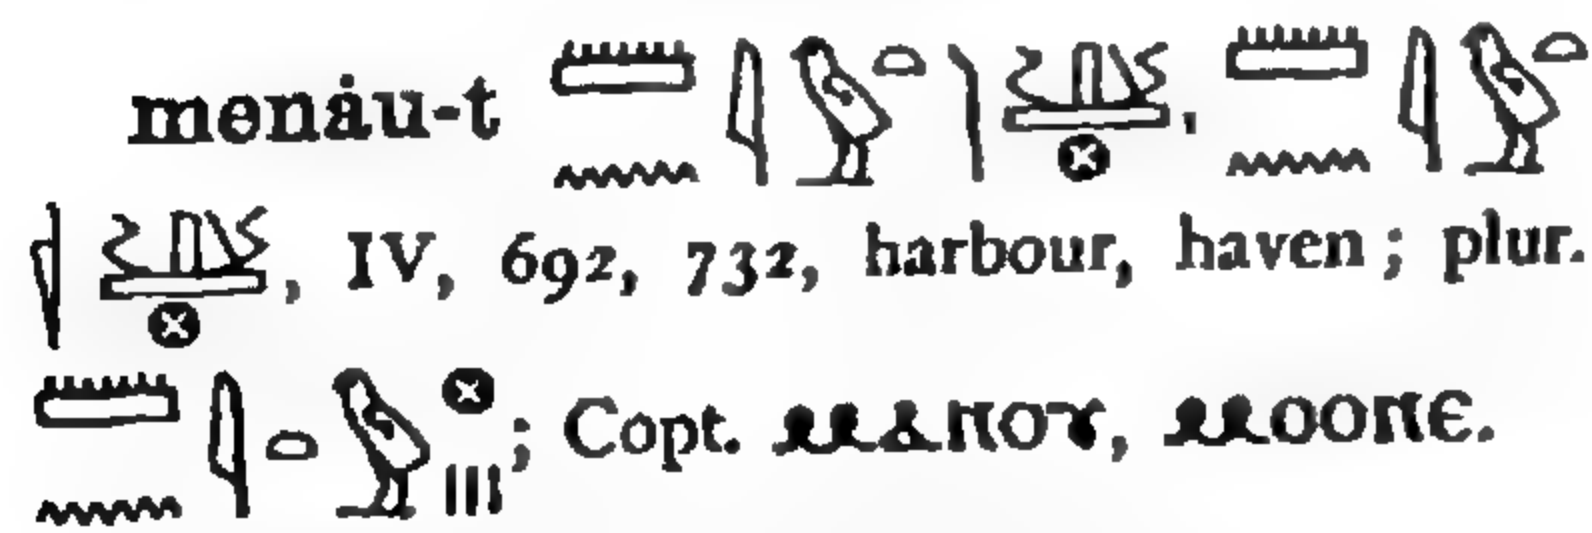 menȧu-t 𓏠𓈖𓇋𓅱𓏏 𓊖, 𓏠𓈖𓇋𓅱𓏏
𓊖, IV, 692, 732, harbour, haven; plur.
𓏠𓈖𓇋𓏏𓅱𓊖𓏥; Copt. ⲙⲁⲛⲟⲩ, ⲙⲟⲟⲛⲉ.